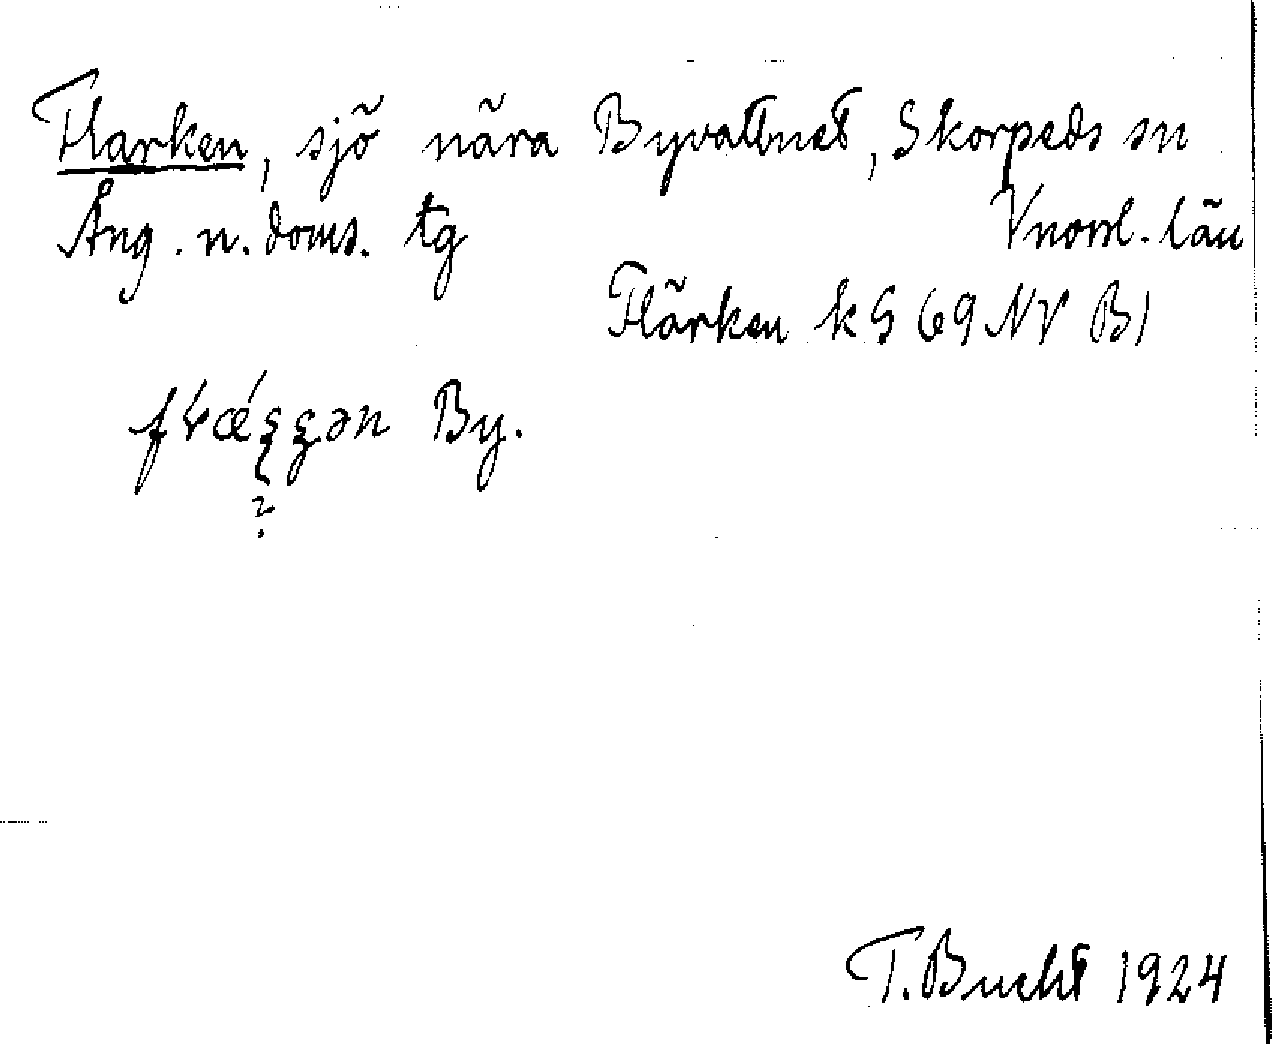 Flarken, sjö nära Byvattnet, Skorpeds sn
Ång. n. doms. tg Vnorrl. län
Flärken kS 69 NV B1
By.
?
T. Bucht 1924